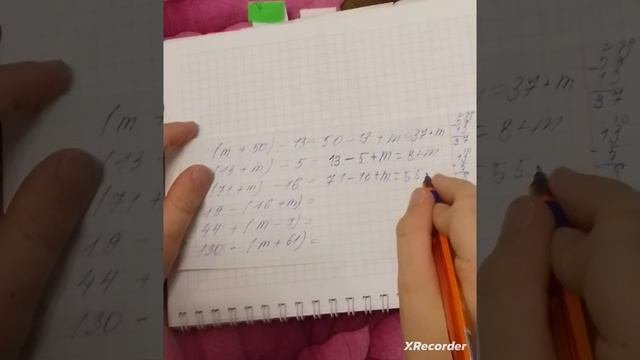 (m + 50) - 13 = 50 - 13 + m = 37 + m
(13 + m) - 5 = 13 - 5 + m = 8 + m
(71 + m) - 16 = 71 - 16 + m = 55
19 - (16 + m) =
44 + (m - 7) =
130 - (m + 61) =
XRecorder